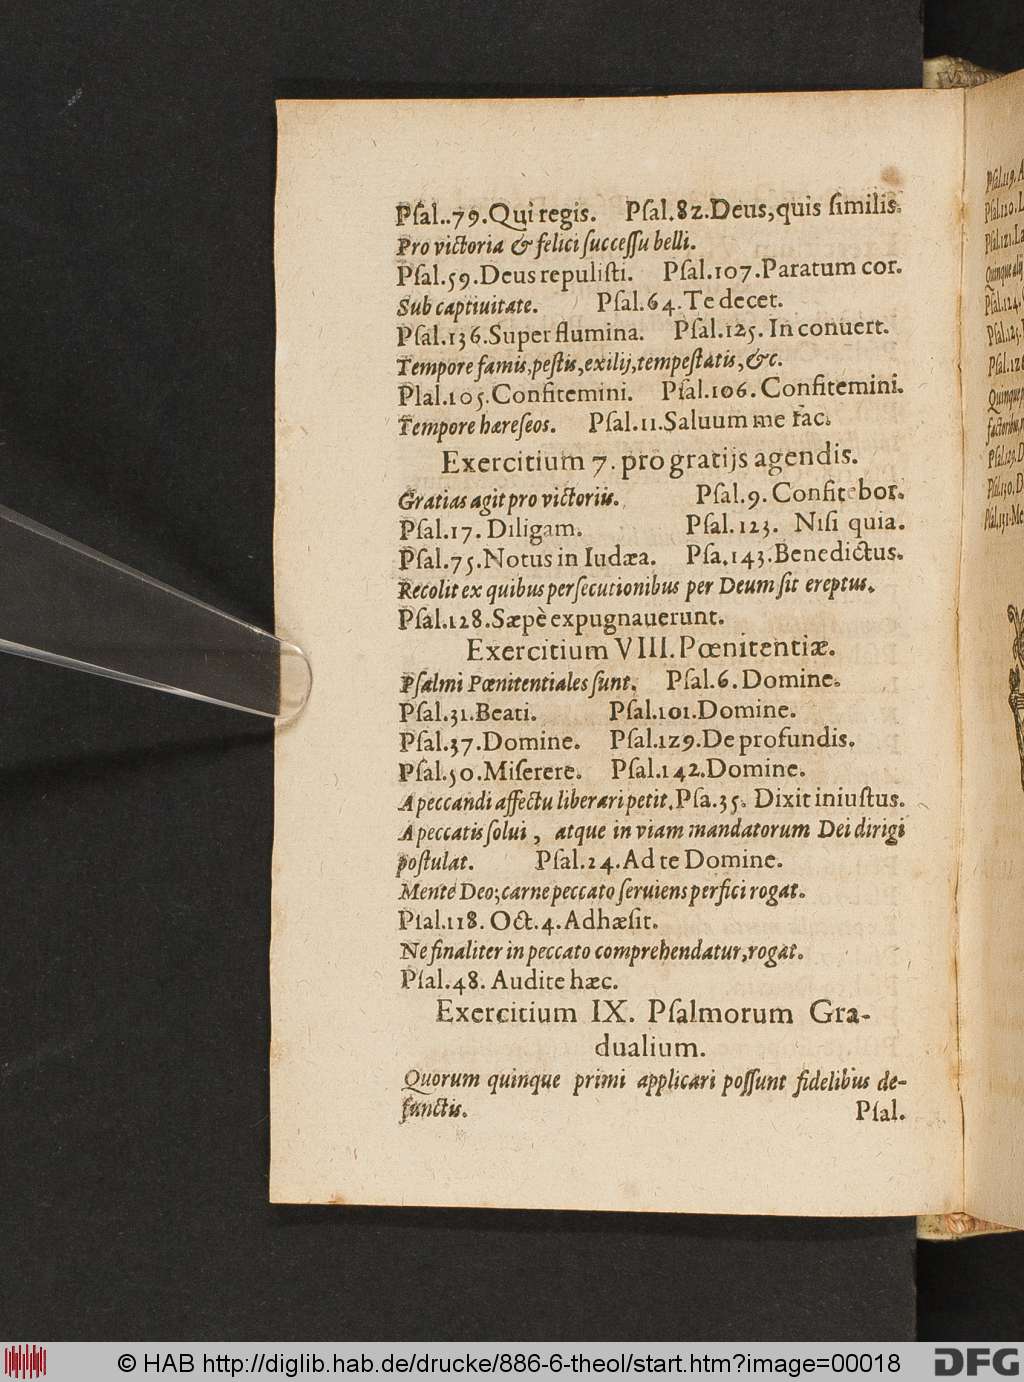 Pſal..79.Qui regis. Pſal.82.Deus,quis ſimilis.
Pro victoria & felici ſucceſſu belli.
Pſal.59.Deus repuliſti. Pſal.107.Paratum cor.
Sub captiuitate. Pſal.64.Te decet.
Pſal.136.Super flumina. Pſal.125. In conuert.
Tempore famis,peſtis,exilij,tempeſtatis,&c.
Plal.105.Confitemini. Pſal.106.Confitemini.
Tempore hæreſeos. Pſal.11.Saluum me fac.
Exercitium 7. pro gratijs agendis.
Gratias agit pro victoriis. Pſal.9. Confitebor.
Pſal.17. Diligam. Pſal.123. Niſi quia.
Pſal.75.Notus in Iudæa. Pſa.143.Benedictus.
Recolit ex quibus perſecutionibus per Deum ſit ereptus.
Pſal.128.Sæpè expugnauerunt.
Exercitium VIII. Pœnitentiæ.
Pſalmi Pœnitentiales ſunt. Pſal.6.Domine.
Pſal.31.Beati. Pſal.101.Domine.
Pſal.37.Domine. Pſal.129.De profundis.
Pſal.50.Miſerere. Pſal.142.Domine.
A peccandi affectu liberari petit.Pſa.35. Dixit iniuſtus.
A peccatis ſolui, atque in viam mandatorum Dei dirigi
poſtulat. Pſal.24.Ad te Domine.
Mente Deo;carne peccato ſeruiens perfici rogat.
Pſal.118. Oct.4.Adhæſit.
Ne finaliter in peccato comprehendatur,rogat.
Pſal.48. Audite hæc.
Exercitium IX. Pſalmorum Gra-
dualium.
Quorum quinque primi applicari poſſunt fidelibus de-
functis. Pſal.
Pſal.119.A
Pſal.120.L
Pſal.121.La
Pſal.124.
Pſal.125.
Pſal.129.D
Pſal.130.D
Pſal.131.Me
© HAB http://diglib.hab.de/drucke/886-6-theol/start.htm?image=00018
DFG